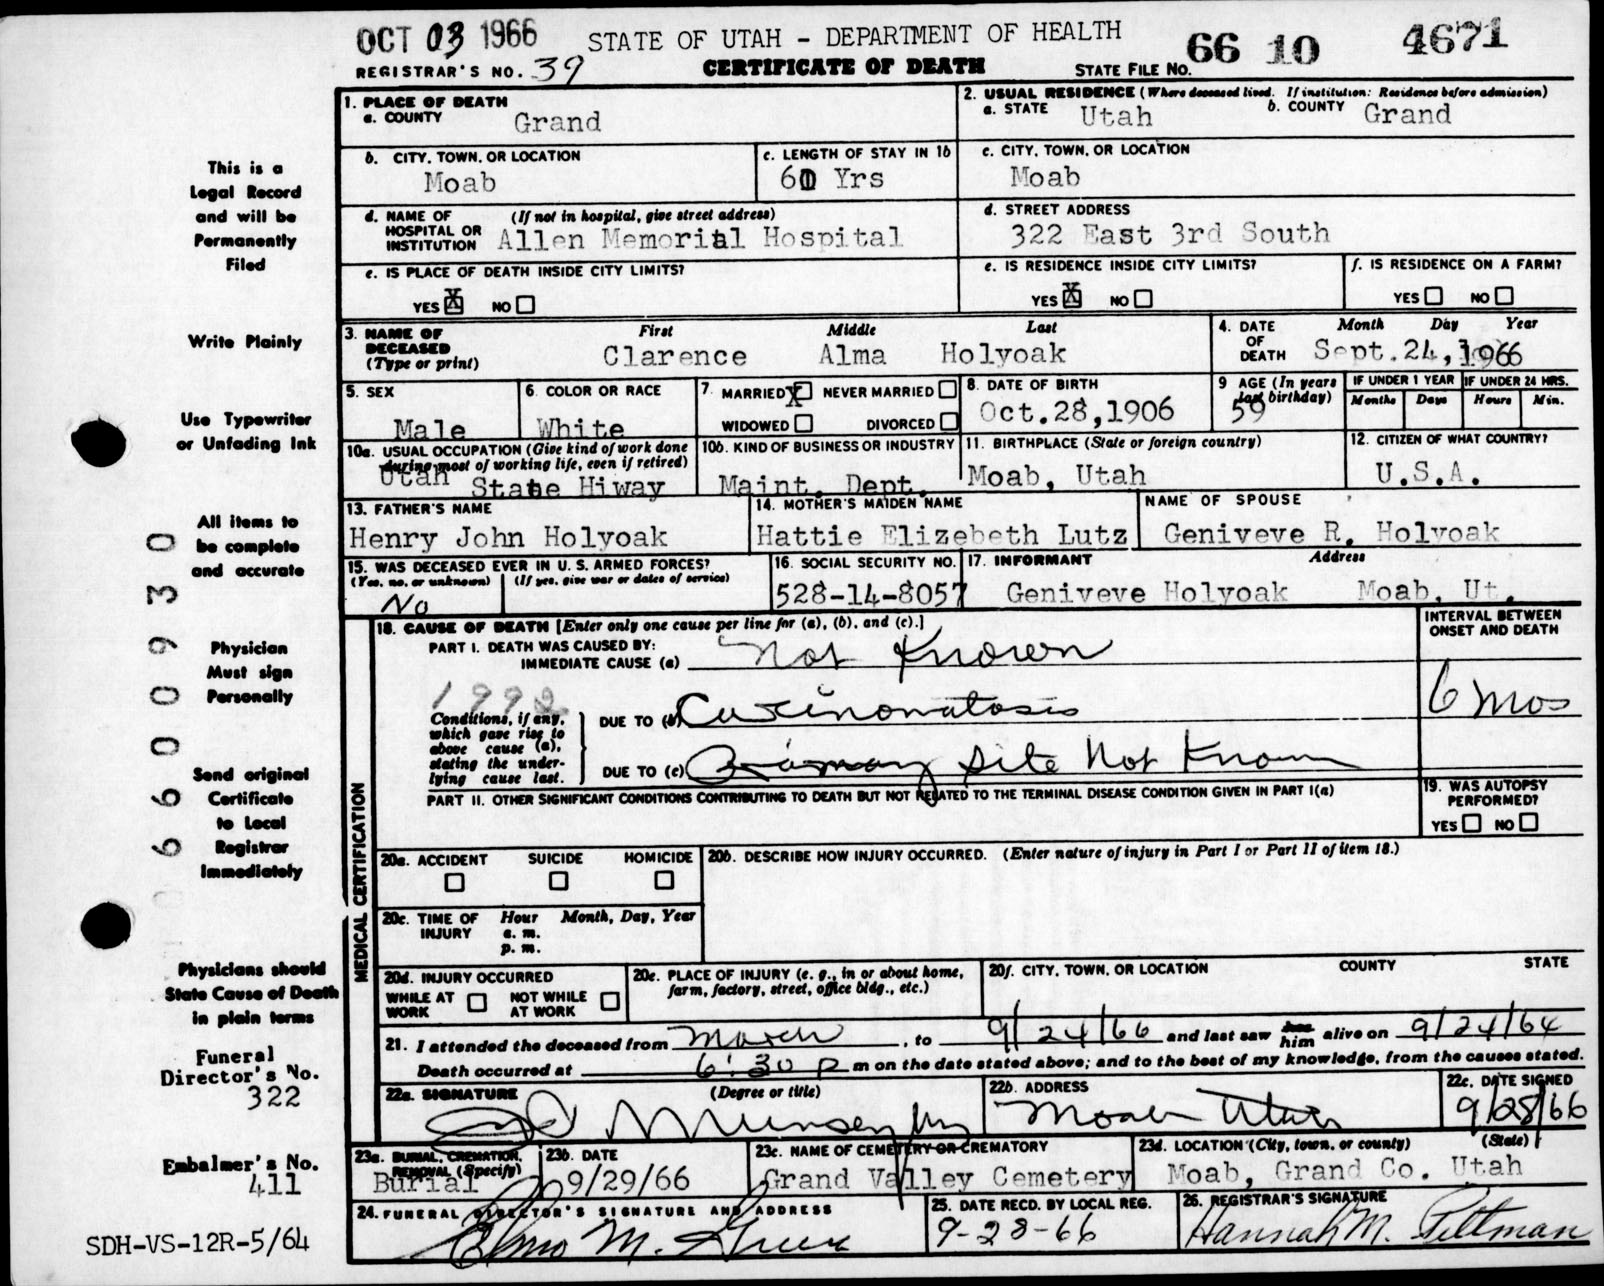 OCT 03 1966 STATE OF UTAH - DEPARTMENT OF HEALTH 66 10 4671
REGISTRAR'S NO. 39 CERTIFICATE OF DEATH STATE FILE NO.
This is a
Legal Record
and will be
Permanently
Filed
Write Plainly
Use Typewriter
or Unfading Ink
All items to
be complete
and accurate
Physician
Must sign
Personally
Send original
Certificate
to Local
Registrar
Immediately
Physicians should
State Cause of Death
in plain terms
Funeral
Director's No.
322
Embalmer's No.
411
SDH-VS-12R-5/64
1. PLACE OF DEATH
a. COUNTY Grand
2. USUAL RESIDENCE (Where deceased lived. If institution: Residence before admission)
a. STATE Utah b. COUNTY Grand
b. CITY, TOWN, OR LOCATION
Moab
c. LENGTH OF STAY IN 1b
60 Yrs
c. CITY, TOWN, OR LOCATION
Moab
d. NAME OF (If not in hospital, give street address)
HOSPITAL OR
INSTITUTION Allen Memorial Hospital
d. STREET ADDRESS
322 East 3rd South
e. IS PLACE OF DEATH INSIDE CITY LIMITS?
YES X NO
e. IS RESIDENCE INSIDE CITY LIMITS?
YES X NO
f. IS RESIDENCE ON A FARM?
YES NO
3. NAME OF First Middle Last
DECEASED
(Type or print) Clarence Alma Holyoak
4. DATE Month Day Year
OF
DEATH Sept. 24, 1966
5. SEX
Male
6. COLOR OR RACE
White
7. MARRIED X NEVER MARRIED
WIDOWED DIVORCED
8. DATE OF BIRTH
Oct.28,1906
9 AGE (In years
last birthday)
59
IF UNDER 1 YEAR IF UNDER 24 HRS.
Months Days Hours Min.
10a. USUAL OCCUPATION (Give kind of work done
during most of working life, even if retired)
Utah State Hiway
10b. KIND OF BUSINESS OR INDUSTRY
Maint. Dept.
11. BIRTHPLACE (State or foreign country)
Moab, Utah
12. CITIZEN OF WHAT COUNTRY?
U.S.A.
13. FATHER'S NAME
Henry John Holyoak
14. MOTHER'S MAIDEN NAME
Hattie Elizebeth Lutz
NAME OF SPOUSE
Geniveve R. Holyoak
15. WAS DECEASED EVER IN U. S. ARMED FORCES?
(Yes, no, or unknown) (If yes, give war or dates of service)
No
16. SOCIAL SECURITY NO.
528-14-8057
17. INFORMANT Address
Geniveve Holyoak Moab, Ut.
MEDICAL CERTIFICATION
18. CAUSE OF DEATH [Enter only one cause per line for (a), (b), and (c).]
INTERVAL BETWEEN
ONSET AND DEATH
PART I. DEATH WAS CAUSED BY:
IMMEDIATE CAUSE (a) Not Known
1992
Conditions, if any,
which gave rise to
above cause (a),
stating the under-
lying cause last.
DUE TO (b) Carcinomatosis
6 mos
DUE TO (c) Primary Site Not Known
PART II. OTHER SIGNIFICANT CONDITIONS CONTRIBUTING TO DEATH BUT NOT RELATED TO THE TERMINAL DISEASE CONDITION GIVEN IN PART I(a)
19. WAS AUTOPSY
PERFORMED?
YES NO
20a. ACCIDENT SUICIDE HOMICIDE
20b. DESCRIBE HOW INJURY OCCURRED. (Enter nature of injury in Part I or Part II of item 18.)
20c. TIME OF Hour Month, Day, Year
INJURY a. m.
p. m.
20d. INJURY OCCURRED
WHILE AT WORK NOT WHILE AT WORK
20e. PLACE OF INJURY (e. g., in or about home,
farm, factory, street, office bldg., etc.)
20f. CITY, TOWN, OR LOCATION COUNTY STATE
21. I attended the deceased from March, to 9/24/66 and last saw her him alive on 9/24/66
Death occurred at 6:30 p m on the date stated above; and to the best of my knowledge, from the causes stated.
22a. SIGNATURE (Degree or title)
22b. ADDRESS
Moab Utah
22c. DATE SIGNED
9/28/66
23a. BURIAL, CREMATION,
REMOVAL (Specify)
Burial
23b. DATE
9/29/66
23c. NAME OF CEMETERY OR CREMATORY
Grand Valley Cemetery
23d. LOCATION (City, town, or county) (State)
Moab, Grand Co. Utah
24. FUNERAL DIRECTOR'S SIGNATURE AND ADDRESS
Elmo M.
25. DATE RECD. BY LOCAL REG.
9-28-66
26. REGISTRAR'S SIGNATURE
Hannah M. Pittman
6600930